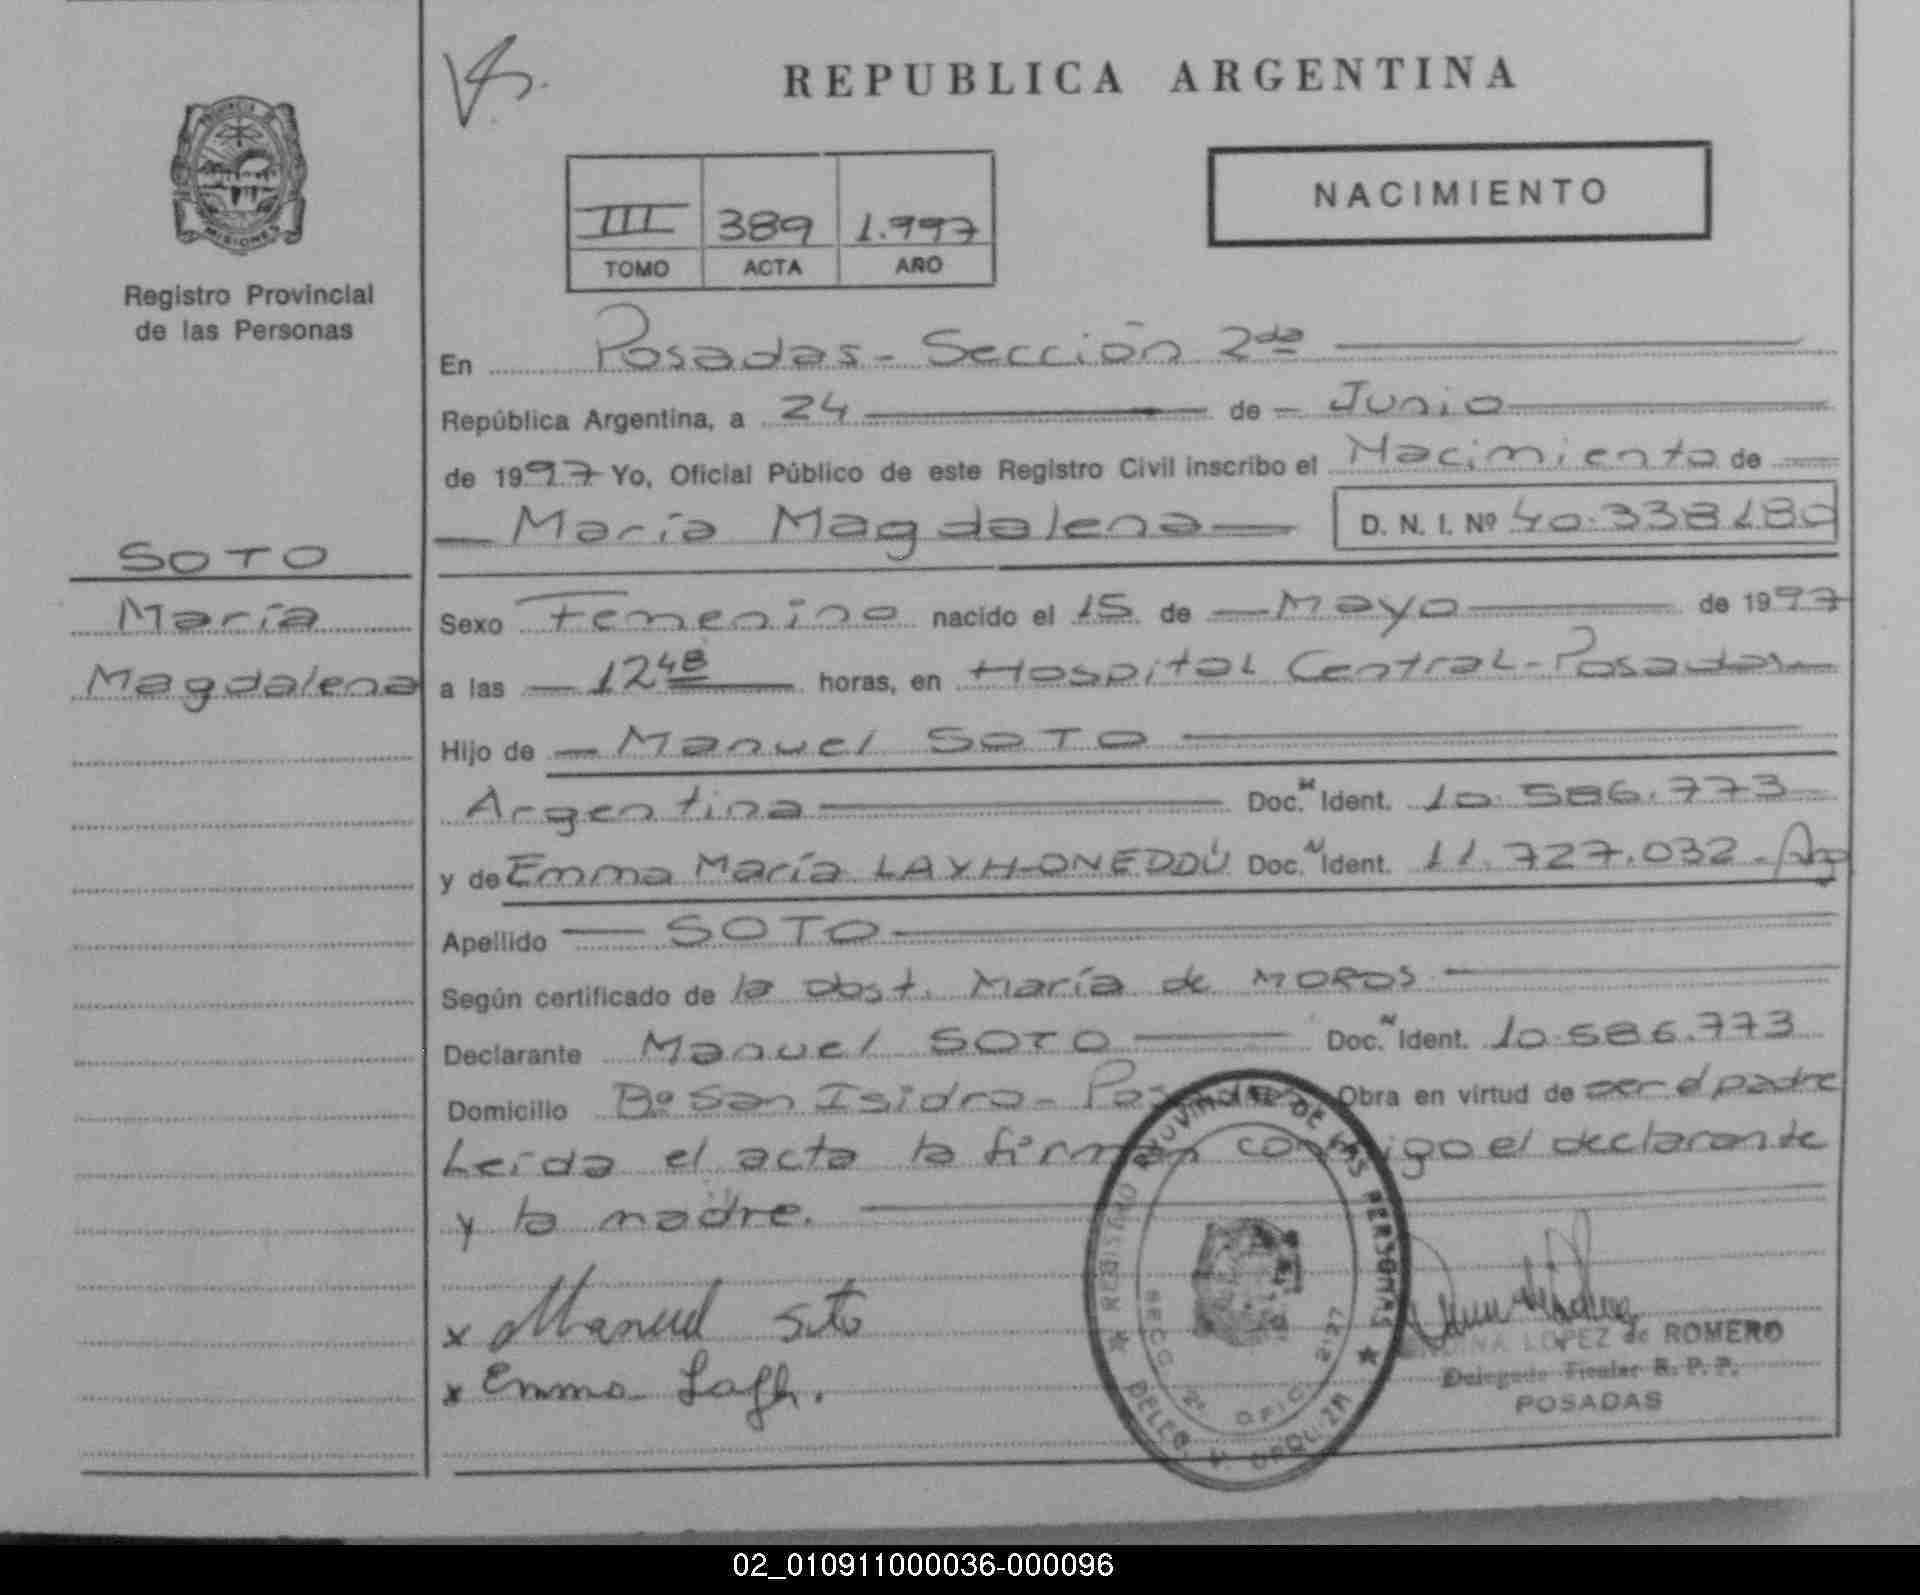 REPUBLICA ARGENTINA
PROVINCIA
MISIONES
Registro Provincial
de las Personas
NACIMIENTO
III 389 1.997
TOMO ACTA AÑO
En Posadas - Sección 2da
República Argentina, a 24 de Junio
de 1997 Yo, Oficial Público de este Registro Civil inscribo el Nacimiento de
María Magdalena D. N. I. Nº 40.338.180
SOTO
María
Magdalena
Sexo Femenino nacido el 15 de Mayo de 1997
a las 12 48 horas, en Hospital Central - Posadas
Hijo de Manuel SOTO
Argentina Doc. Ident. 10.586.773
y de Emma María LAYHONEDDÚ Doc. Ident. 11.727.032 - Arg
Apellido SOTO
Según certificado de la obst. María de MOROS
Declarante Manuel SOTO Doc. Ident. 10.586.773
Domicilio Bº San Isidro - Posadas Obra en virtud de ser el padre
Leida el acta la firman conmigo el declarante
y la madre.
x Manuel Soto
x Emma
REGISTRO PROVINCIAL DE LAS PERSONAS
SECC. 2º OFIC. 2127
DELEG. V. URQUIZA
LOPEZ de ROMERO
Delegado Titular R. P. P.
POSADAS
02_010911000036-000096